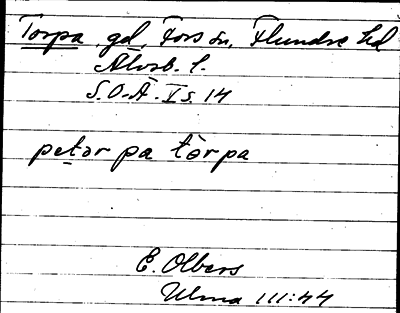 Torpa gd, Fors sn, Flundre hd
Älvsb. l.
S.O.Ä. X s. 14
petər pa tòrpa
E. Olbers
Ulma 111:44